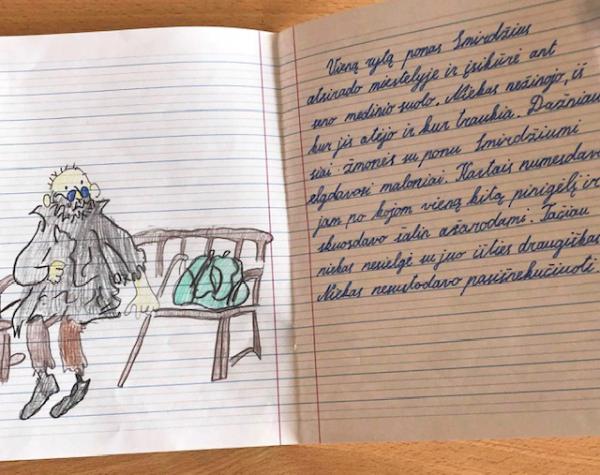 Vieną rytą ponas Smirdžius
atsirado miestelyje ir įsikūrė ant
seno medinio suolo. Niekas nežinojo, iš
kur jis atėjo ir kur traukia. Dažniau
siai žmonės su ponu Smirdžiumi
elgdavosi maloniai. Kartais numesdavo
jam po kojom vieną kitą pinigėlį ir
skuosdavo šalin ažarodami. Tačiau
niekas nesielgė su juo išties draugiškai.
Niekas nesustodavo pasišnekučiuoti.